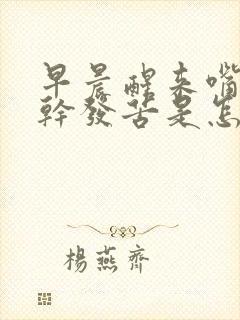 早晨醒来嘴
幹發苦是怎
楊燕齊